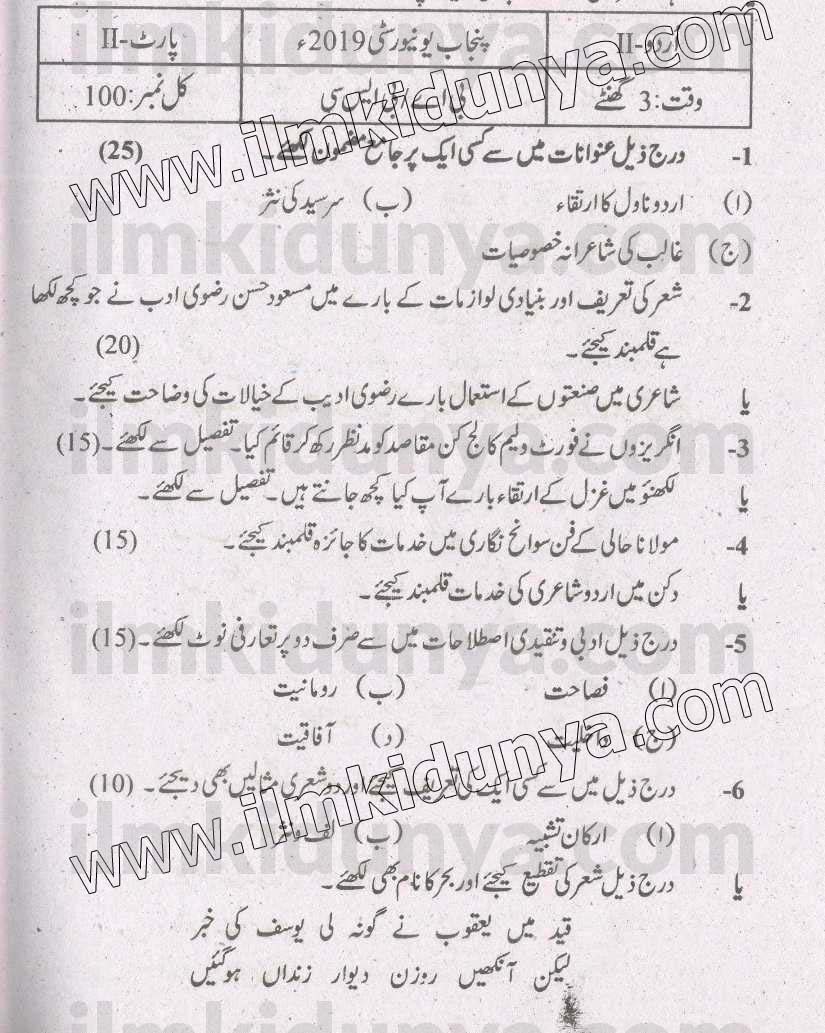 اردو-II پنجاب یونیورسٹی 2019ء پارٹ-II
وقت: 3 گھنٹے بی اے/بی ایس سی کل نمبر: 100
1- درج ذیل عنوانات میں سے کسی ایک پر جامع مضمون لکھئے۔ (25)
(ا) اردو ناول کا ارتقاء (ب) سرسید کی نثر
(ج) غالب کی شاعرانہ خصوصیات
2- شعر کی تعریف اور بنیادی لوازمات کے بارے میں مسعود حسن رضوی ادب نے جو کچھ لکھا
ہے قلمبند کیجئے۔ (20)
یا شاعری میں صنعتوں کے استعمال بارے رضوی ادیب کے خیالات کی وضاحت کیجئے۔
3- انگریزوں نے فورٹ ولیم کالج کن مقاصد کو مدنظر رکھ کر قائم کیا۔ تفصیل سے لکھئے۔ (15)
یا لکھنؤ میں غزل کے ارتقاء بارے آپ کیا کچھ جانتے ہیں۔ تفصیل سے لکھئے۔
4- مولانا حالی کے فن سوانح نگاری میں خدمات کا جائزہ قلمبند کیجئے۔ (15)
یا دکن میں اردو شاعری کی خدمات قلمبند کیجئے۔
5- درج ذیل ادبی و تنقیدی اصطلاحات میں سے صرف دو پر تعارفی نوٹ لکھئے۔ (15)
(ا) فصاحت (ب) رومانیت
(ج) داخلیت (د) آفاقیت
6- درج ذیل میں سے کسی ایک کی تعریف کیجئے اور دو شعری مثالیں بھی دیجئے۔ (10)
(ا) ارکان تشبیہ (ب) لف و نشر
یا درج ذیل شعر کی تقطیع کیجئے اور بحر کا نام بھی لکھئے۔
قید میں یعقوب نے گونہ لی یوسف کی خبر
لیکن آنکھیں روزن دیوار زنداں ہوگئیں
www.ilmkidunya.com
www.ilmkidunya.com
ilmkidunya.com
ilmkidunya.com
ilmkidunya.com
ilmkidunya.com
ilmkidunya.com